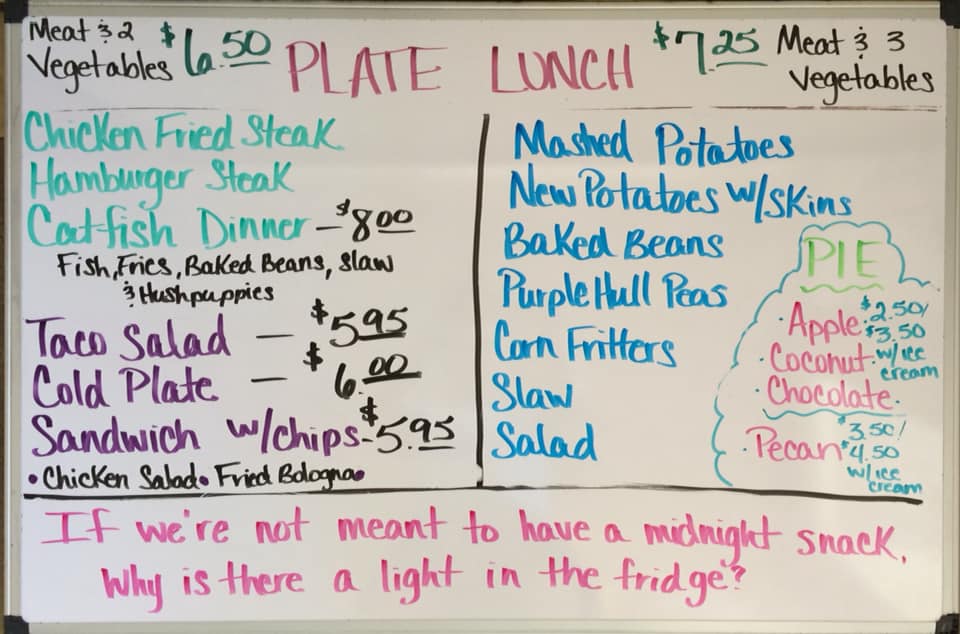 Meat & 2
Vegetables $6.50
PLATE LUNCH
$7.25 Meat & 3
Vegetables
Chicken Fried Steak
Hamburger Steak
Catfish Dinner - $8.00
Fish, Fries, Baked Beans, Slaw
& Hushpuppies
Taco Salad - $5.95
Cold Plate - $6.00
Sandwich w/chips - $5.95
• Chicken Salad • Fried Bologna •
Mashed Potatoes
New Potatoes w/skins
Baked Beans
Purple Hull Peas
Corn Fritters
Slaw
Salad
PIE
• Apple • $2.50/
• Coconut • $3.50
• Chocolate • w/ice
cream
• Pecan $3.50/
$4.50
w/ice
cream
If we're not meant to have a midnight snack,
Why is there a light in the fridge?